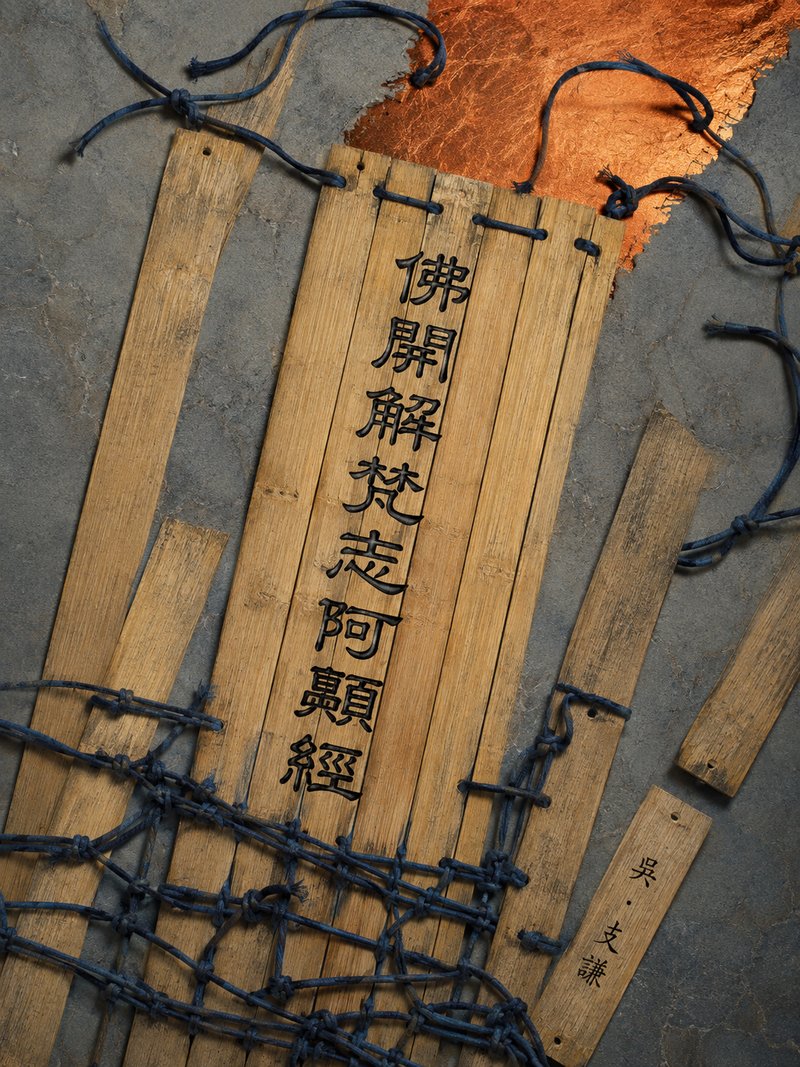 佛開解梵志阿顛經
吳·支謙